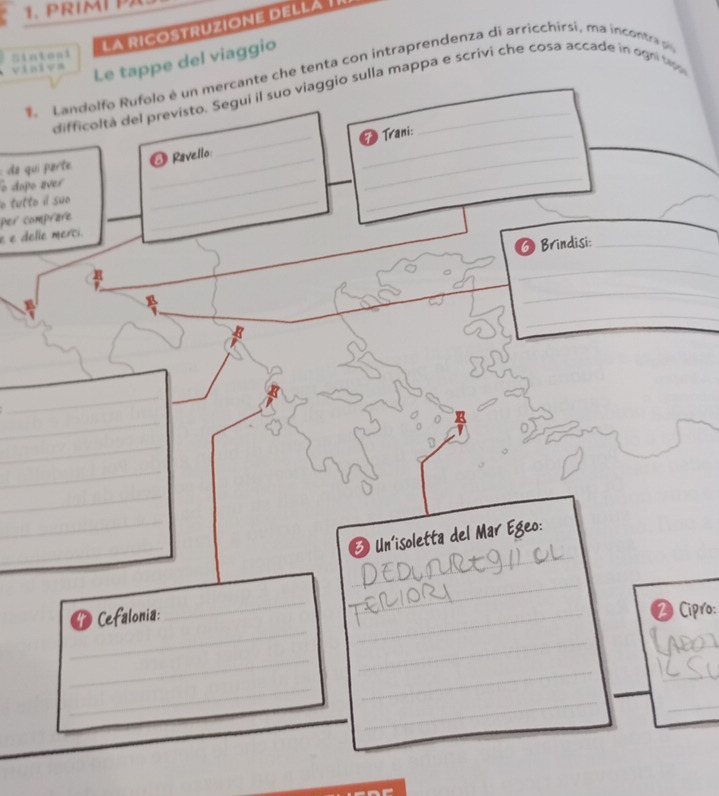 1. PRIMI
LA RICOSTRUZIONE DELLA
Sintesi
visiva
Le tappe del viaggio
1. Landolfo Rufolo è un mercante che tenta con intraprendenza di arricchirsi, ma incontra più
difficoltà del previsto. Segui il suo viaggio sulla mappa e scrivi che cosa accade in ogni tappa
: da qui parte
dopo aver
o tutto il suo
per comprare
e e delle merci.
8 Ravello:
7 Trani:
6 Brindisi:
3 Un'isoletta del Mar Egeo:
TERIORI
4 Cefalonia:
2 Cipro:
IL SU